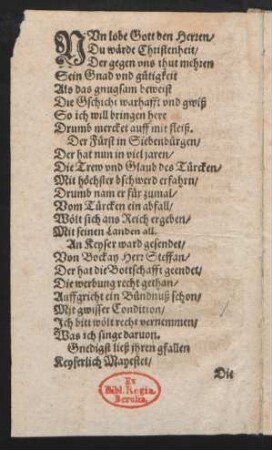 NVn lobe Gott den Herren/
Du wärde Christenheit/
Der gegen vns thut mehren
Sein Gnad vnd gütigkeit
Als das gnugsam beweist
Die Gschicht warhafft vnd gwiß
So ich will bringen here
Drumb mercket auff mit fleiß.
Der Fürst in Siebenbürgen/
Der hat nun in viel jaren/
Die Trew vnd Glaub des Türcken/
Mit höchster bschwerd erfahrn/
Drumb nam er für zumal/
Vom Türcken ein abfall/
Wölt sich ans Reich ergeben/
Mit seinen Landen all.
An Keyser ward gesendet/
Von Bockay Herr Steffan/
Der hat die Bottschafft geendet/
Die werbung recht gethan/
Auffgricht ein Bündnuß schon/
Mit gwisser Condition/
Ich bitt wölt recht vernemmen/
Was ich singe daruon.
Gnedigst ließ jhren gfallen
Keyserlich Mayestet/
Die
Ex
Bibl. Regia
Berolin.